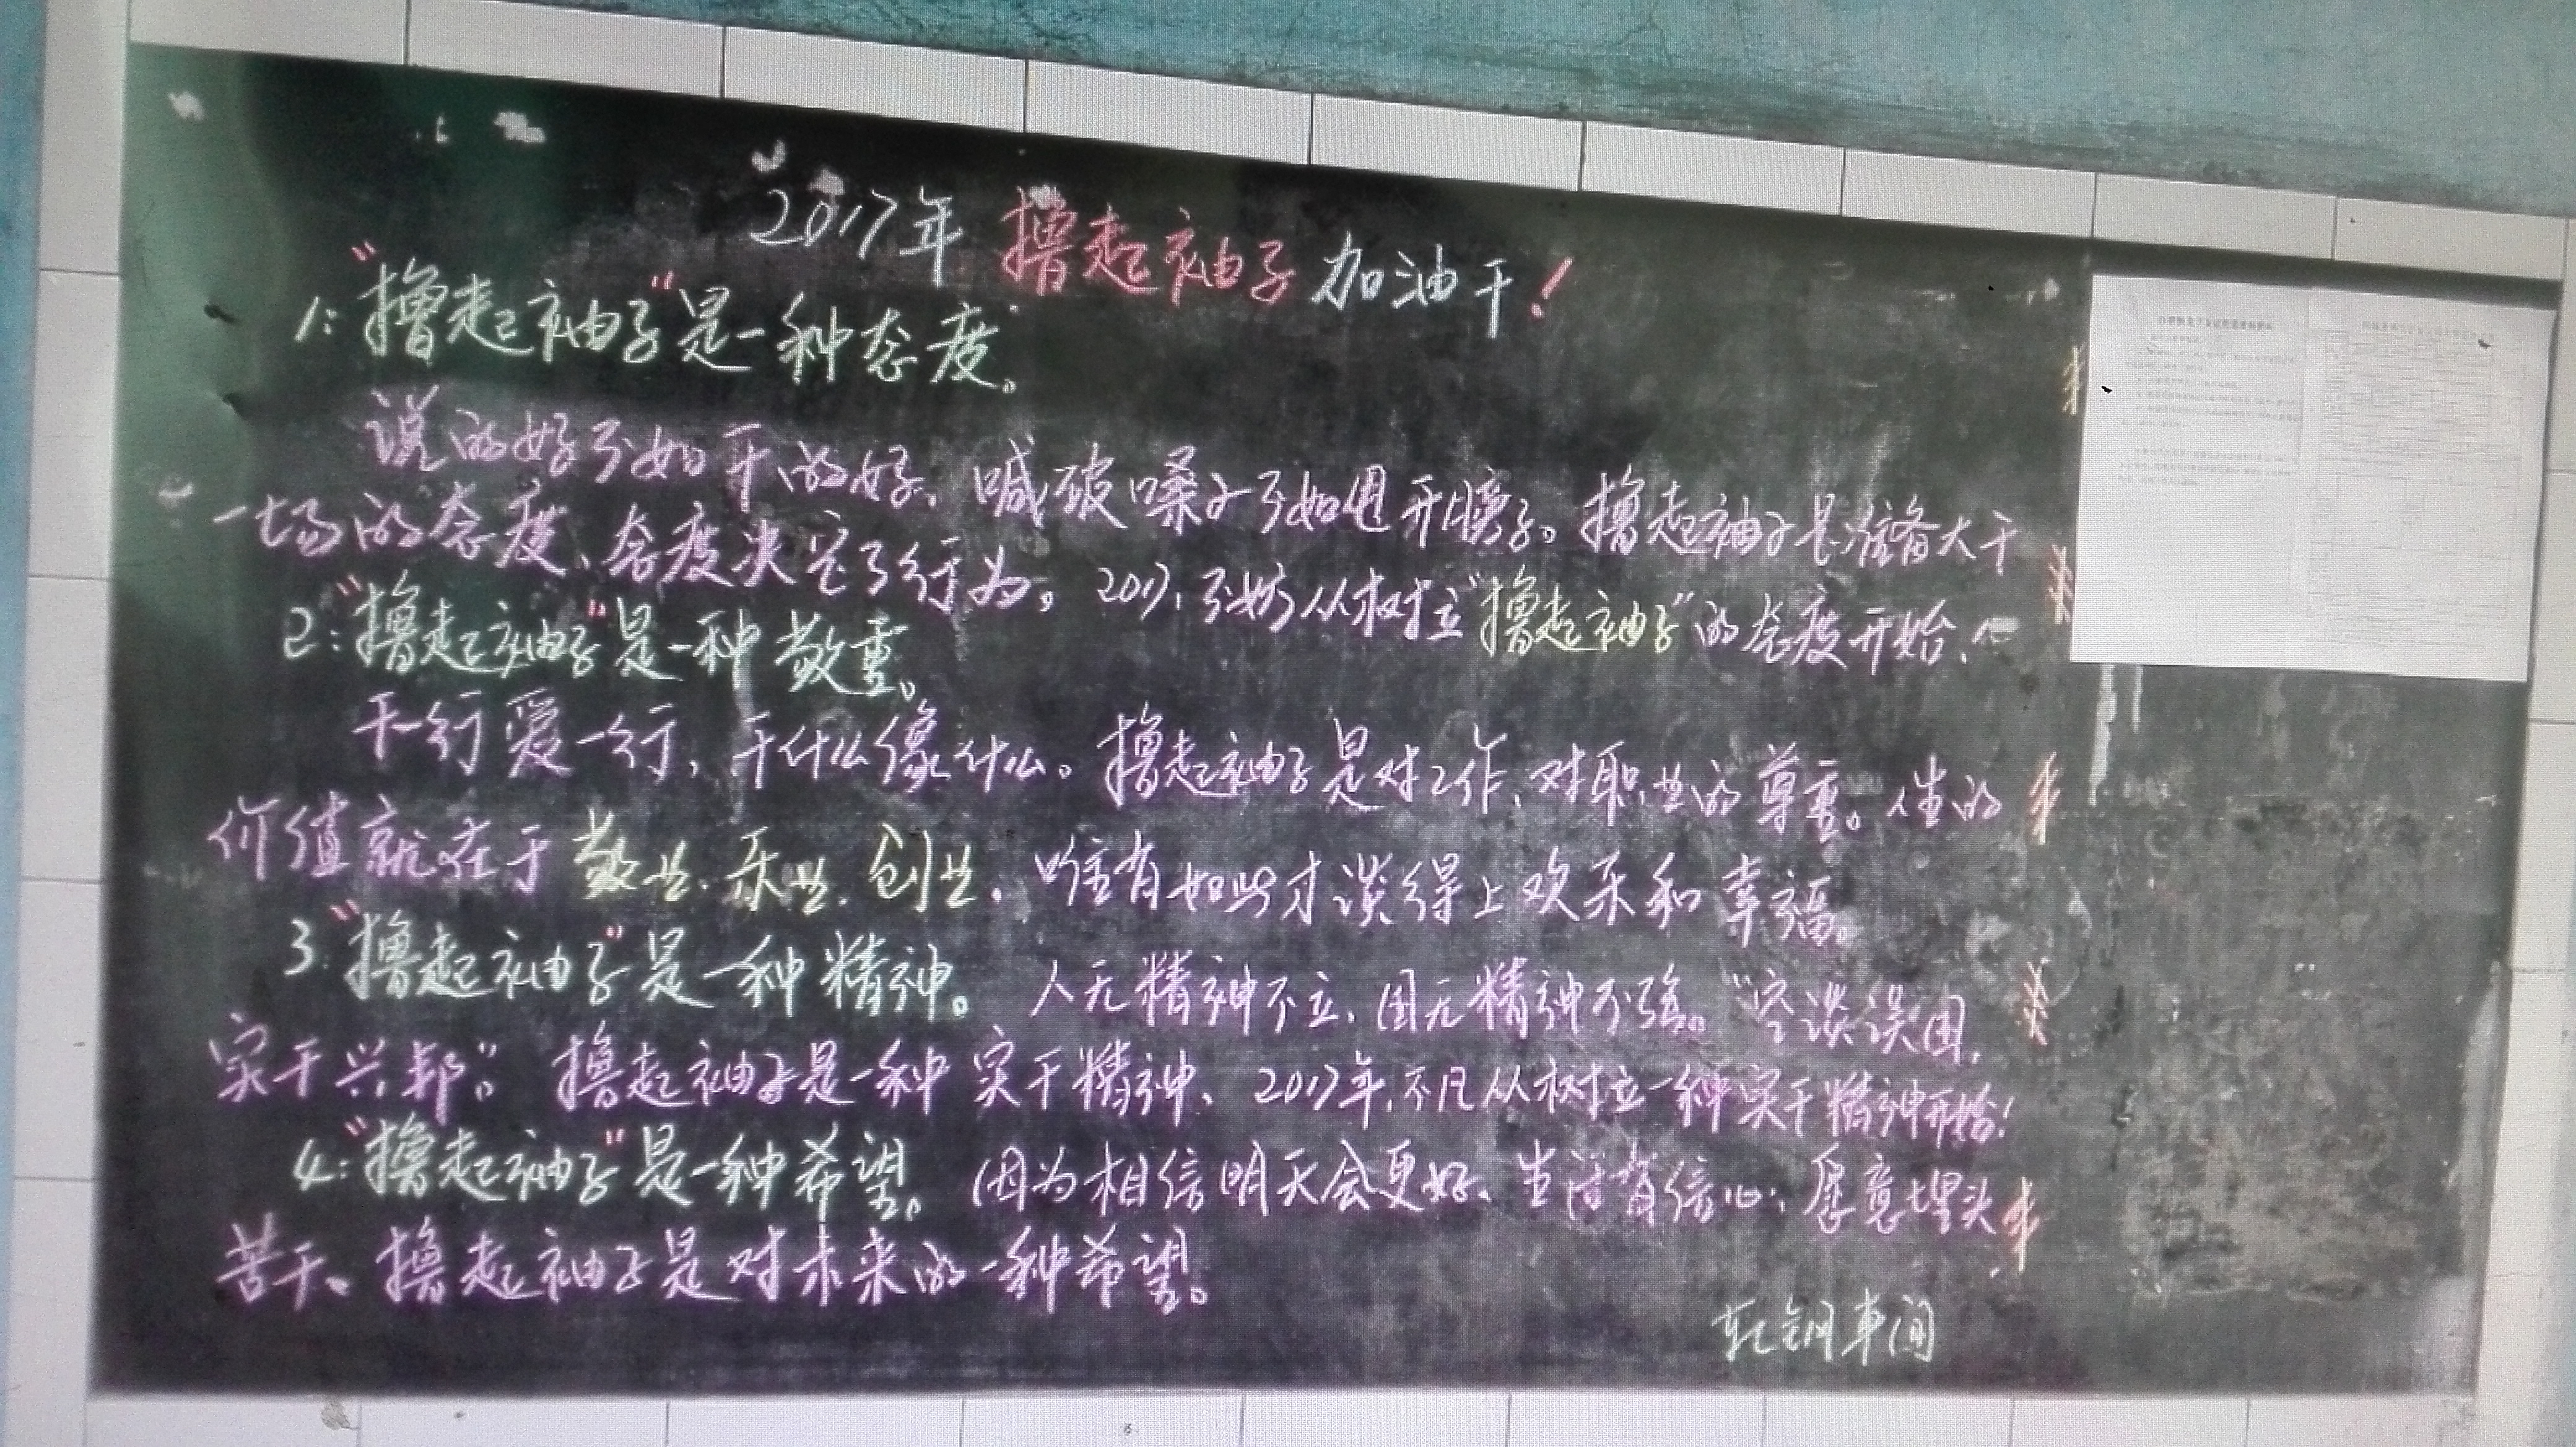 2017年 撸起袖子 加油干！
1："撸起袖子"是一种态度。
说的好不如干的好，喊破嗓子不如甩开膀子。撸起袖子是准备大干
一场的态度、态度决定了行为。2017，不妨从树立"撸起袖子"的态度开始、
2："撸起袖子"是一种敬重。
干一行爱一行，干什么像什么。撸起袖子是对工作、对职业的尊重。人生的
价值就在于敬业、乐业、创业、唯有如此才谈得上欢乐和幸福。
3："撸起袖子"是一种精神。人无精神不立，国无精神不强。"空谈误国，
实干兴邦。"撸起袖子是一种实干精神、2017年，不凡从树立一种实干精神开始！
4："撸起袖子"是一种希望。因为相信明天会更好、生活有信心，愿意埋头
苦干、撸起袖子是对未来的一种希望。
轧钢车间